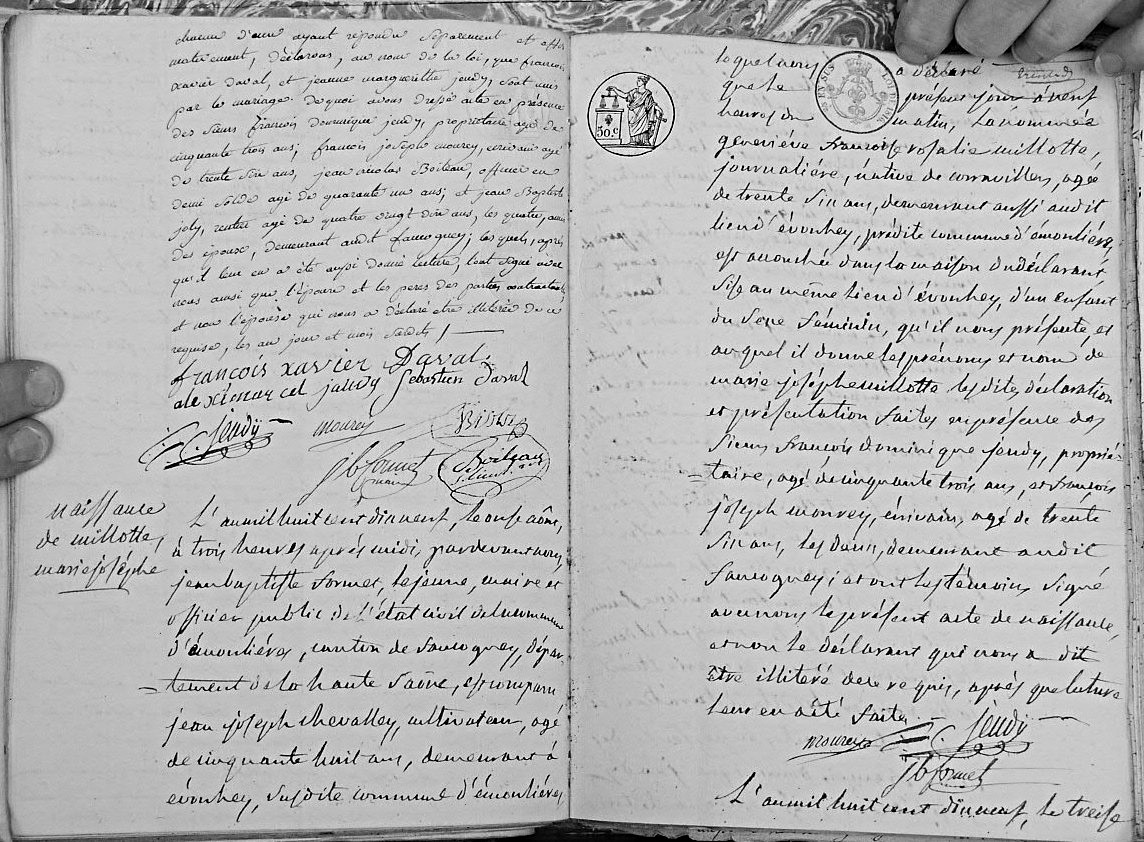 chacun d'eux ayant répondu séparément et affir
mativement, déclarons, au nom de la loi, que françois
xavier Daval, et jeanne margueritte jeudy, sont unis
par le mariage. De quoi avons dressé acte en présence
des sieurs françois Dominique jeudy, propriétaire agé de
cinquante trois ans; françois joseph mourey, écrivain agé
de trente six ans, jean nicolas Boileau, officier en
demi solde agé de quarante un ans; et jean Baptiste
joly, rentier agé de quatre vingt dix ans, les quatre, amis
des époux, demeurant audit faucogney; les quels, après
qu'il leur en a été aussi donné lecture, l'ont signé avec
nous ainsi que l'époux et les peres des parties contractantes,
et non l'épouse qui nous a déclaré etre illitérée de ce
requise, les an jour et mois susdits /
françois xavier Daval.
alexi marcel jeudy Sebastien Daval
Jeudy mourey
jb formet Boileau
maire
naissance
de millotte,
marie joséphe
L'an mil huit cent dix neuf, le onze aôut,
à trois heures après midi, pardevant nous,
jean baptiste formet, le jeune, maire et
officier public de l'état civil de la commune
d'émoulières, canton de faucogney, dépar-
=tement de la haute saône, est comparu
jean joseph chevalley, cultivateur, agé
de cinquante huit ans, demeurant à
évouhey, susdite commune d'émoulières
50.c
EN SUS
lequel nous a déclaré
que le présent jour à vent
heures du matin, La nommée
geneviéve francoise rosalie millotte,
journaliére, native de corravillers, agée
de trente six ans, demeurant aussi audit
lieu d'évouhey, prédite commune d'émoulières,
est accouchée dans la maison du déclarant
sise au même lieu d'évouhey, d'un enfant
du sexe féminin, qu'il nous présente, et
auquel il donne les prénoms et nom de
marie joséphe millotte les dites déclaration
et présentation faites en présence des
sieurs françois dominique jeudy, proprié-
=taire, agé de cinquante trois ans, et françois
joseph mourey, écrivain, agé de trente
six ans, les deux, demeurant audit
faucogney; et ont les témoins signé
avec nous le présent acte de naissance,
et non le déclarant qui nous a dit
être illitéré de ce requis, après que lecture
leur en a été faite
mourey Jeudy
jb formet
L'an mil huit cent dix neuf, le treise